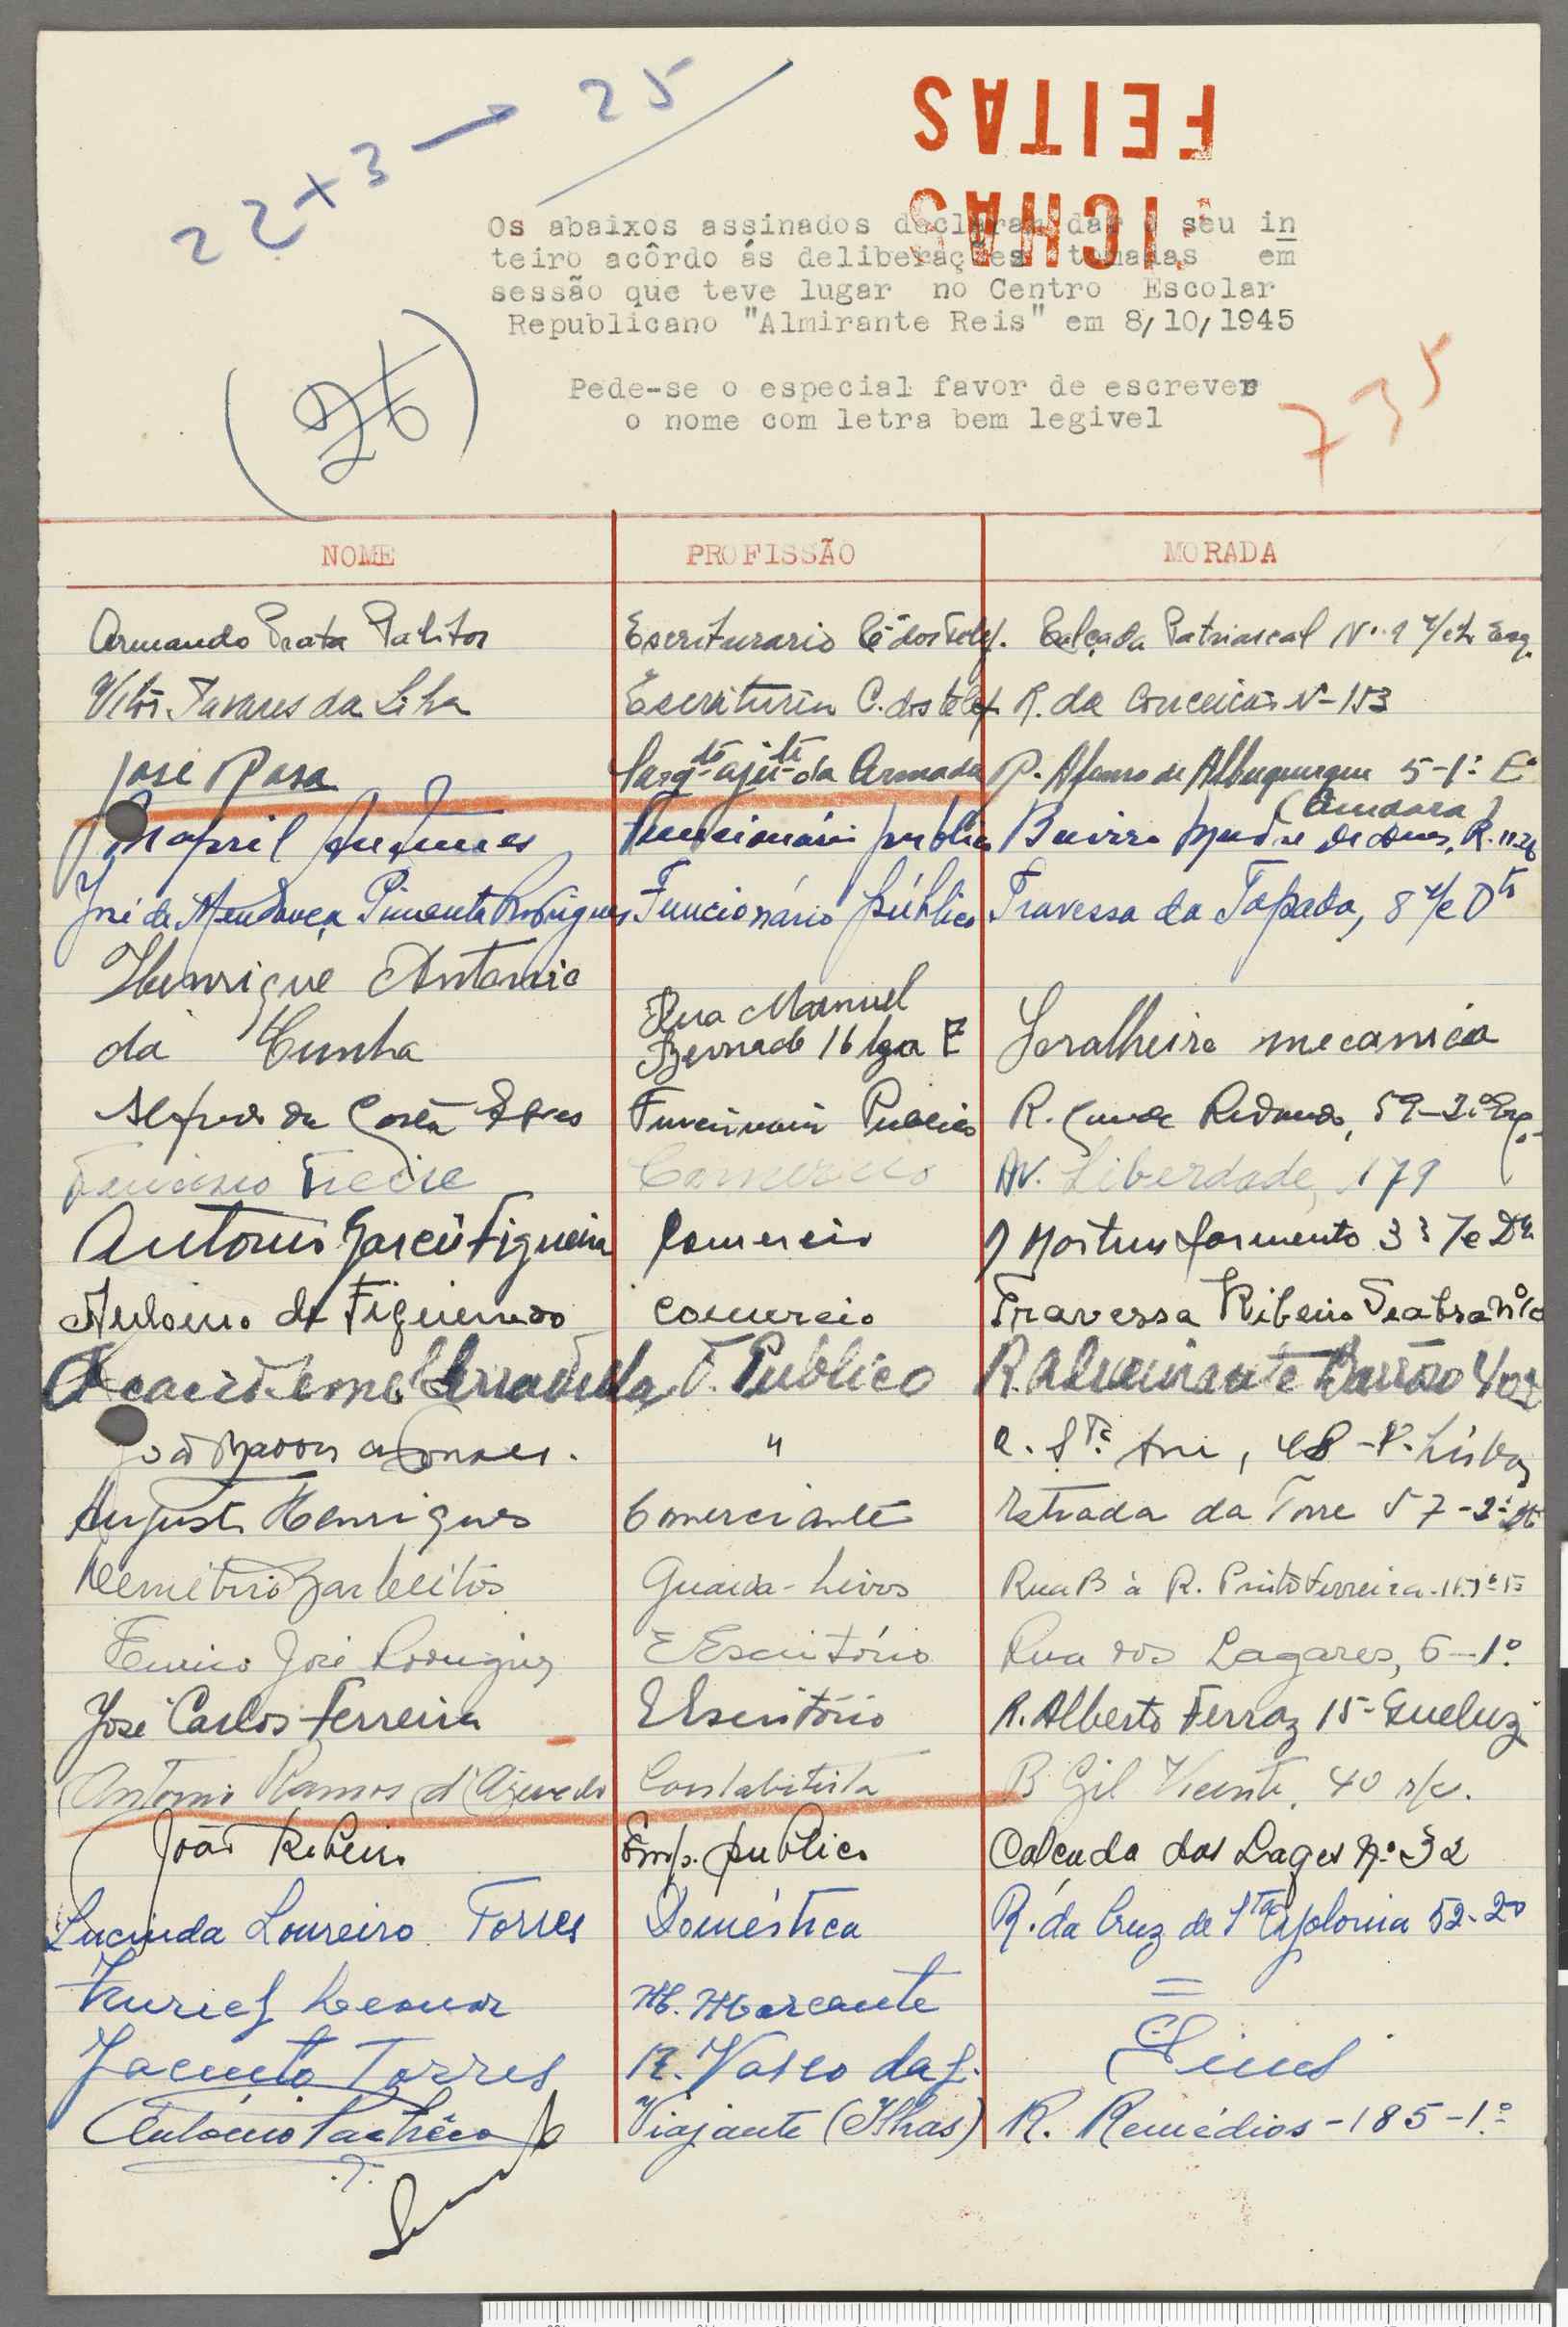 22+3 → 25
FICHAS
FEITAS
Os abaixos assinados declaram dar o seu in
teiro acôrdo ás deliberações tomadas em
sessão que teve lugar no Centro Escolar
Republicano "Almirante Reis" em 8/10/1945
(26)
Pede-se o especial favor de escrever
o nome com letra bem legivel
735
NOME PROFISSÃO MORADA
Armando Prata Escriturario Cª dos Telef. Calçada Patriarcal Nº 9 r/ch Esq.
Tavares da C. dos telef. R. da Conceição Nº 153
José Rosa Sargtº ajudte da Armada P. Afonso de Albuquerque 5-1º Eº
(Amadora)
Antunes Funcionário publico Bairro Madre de Deus, R. 11
José de Mendonça Pimenta Rodrigues Funcionário público Travessa da Tapada, 8 r/c Dto
Henrique Antonio
da Cunha Rua Manuel
Bernade 16 E Seralheiro mecanico
Alfredo da Costa Funcionario Publico R. Conde Redondo, 59-2º Esq.
Francisco Freire Comercio Av. Liberdade, 179
Antonio Garcia Figueira Comercio Sarmento 33
Antonio de Figueiredo Comercio Travessa Ribeiro Seabra
F. Publico R. Almirante Barroso
" R. Sta Ana, 48 - Lisboa
Augusto Henriques Comerciante Estrada da Torre 57-2º
Demétrio Barbeitos Guarda-Livros Rua B à R. Pinto Ferreira
Eurico José Rodrigues E Escritório Rua dos Lagares, 6-1º
José Carlos Ferreira E Escritório R. Alberto Ferraz 15 - Queluz
Antonio Ramos d'Azevedo Contabilista B Gil Vicente, 40 r/c.
João Ribeiro Emp. publico Calçada das Lages Nº 32
Lucinda Loureiro Torres Doméstica R. da Cruz de Sta Apolonia 52-2º
Leonor M. Marcante =
Jacinto Torres R. Vasco da G. Sines
António Pacheco Viajante (Ilhas) R. Remédios - 185-1º